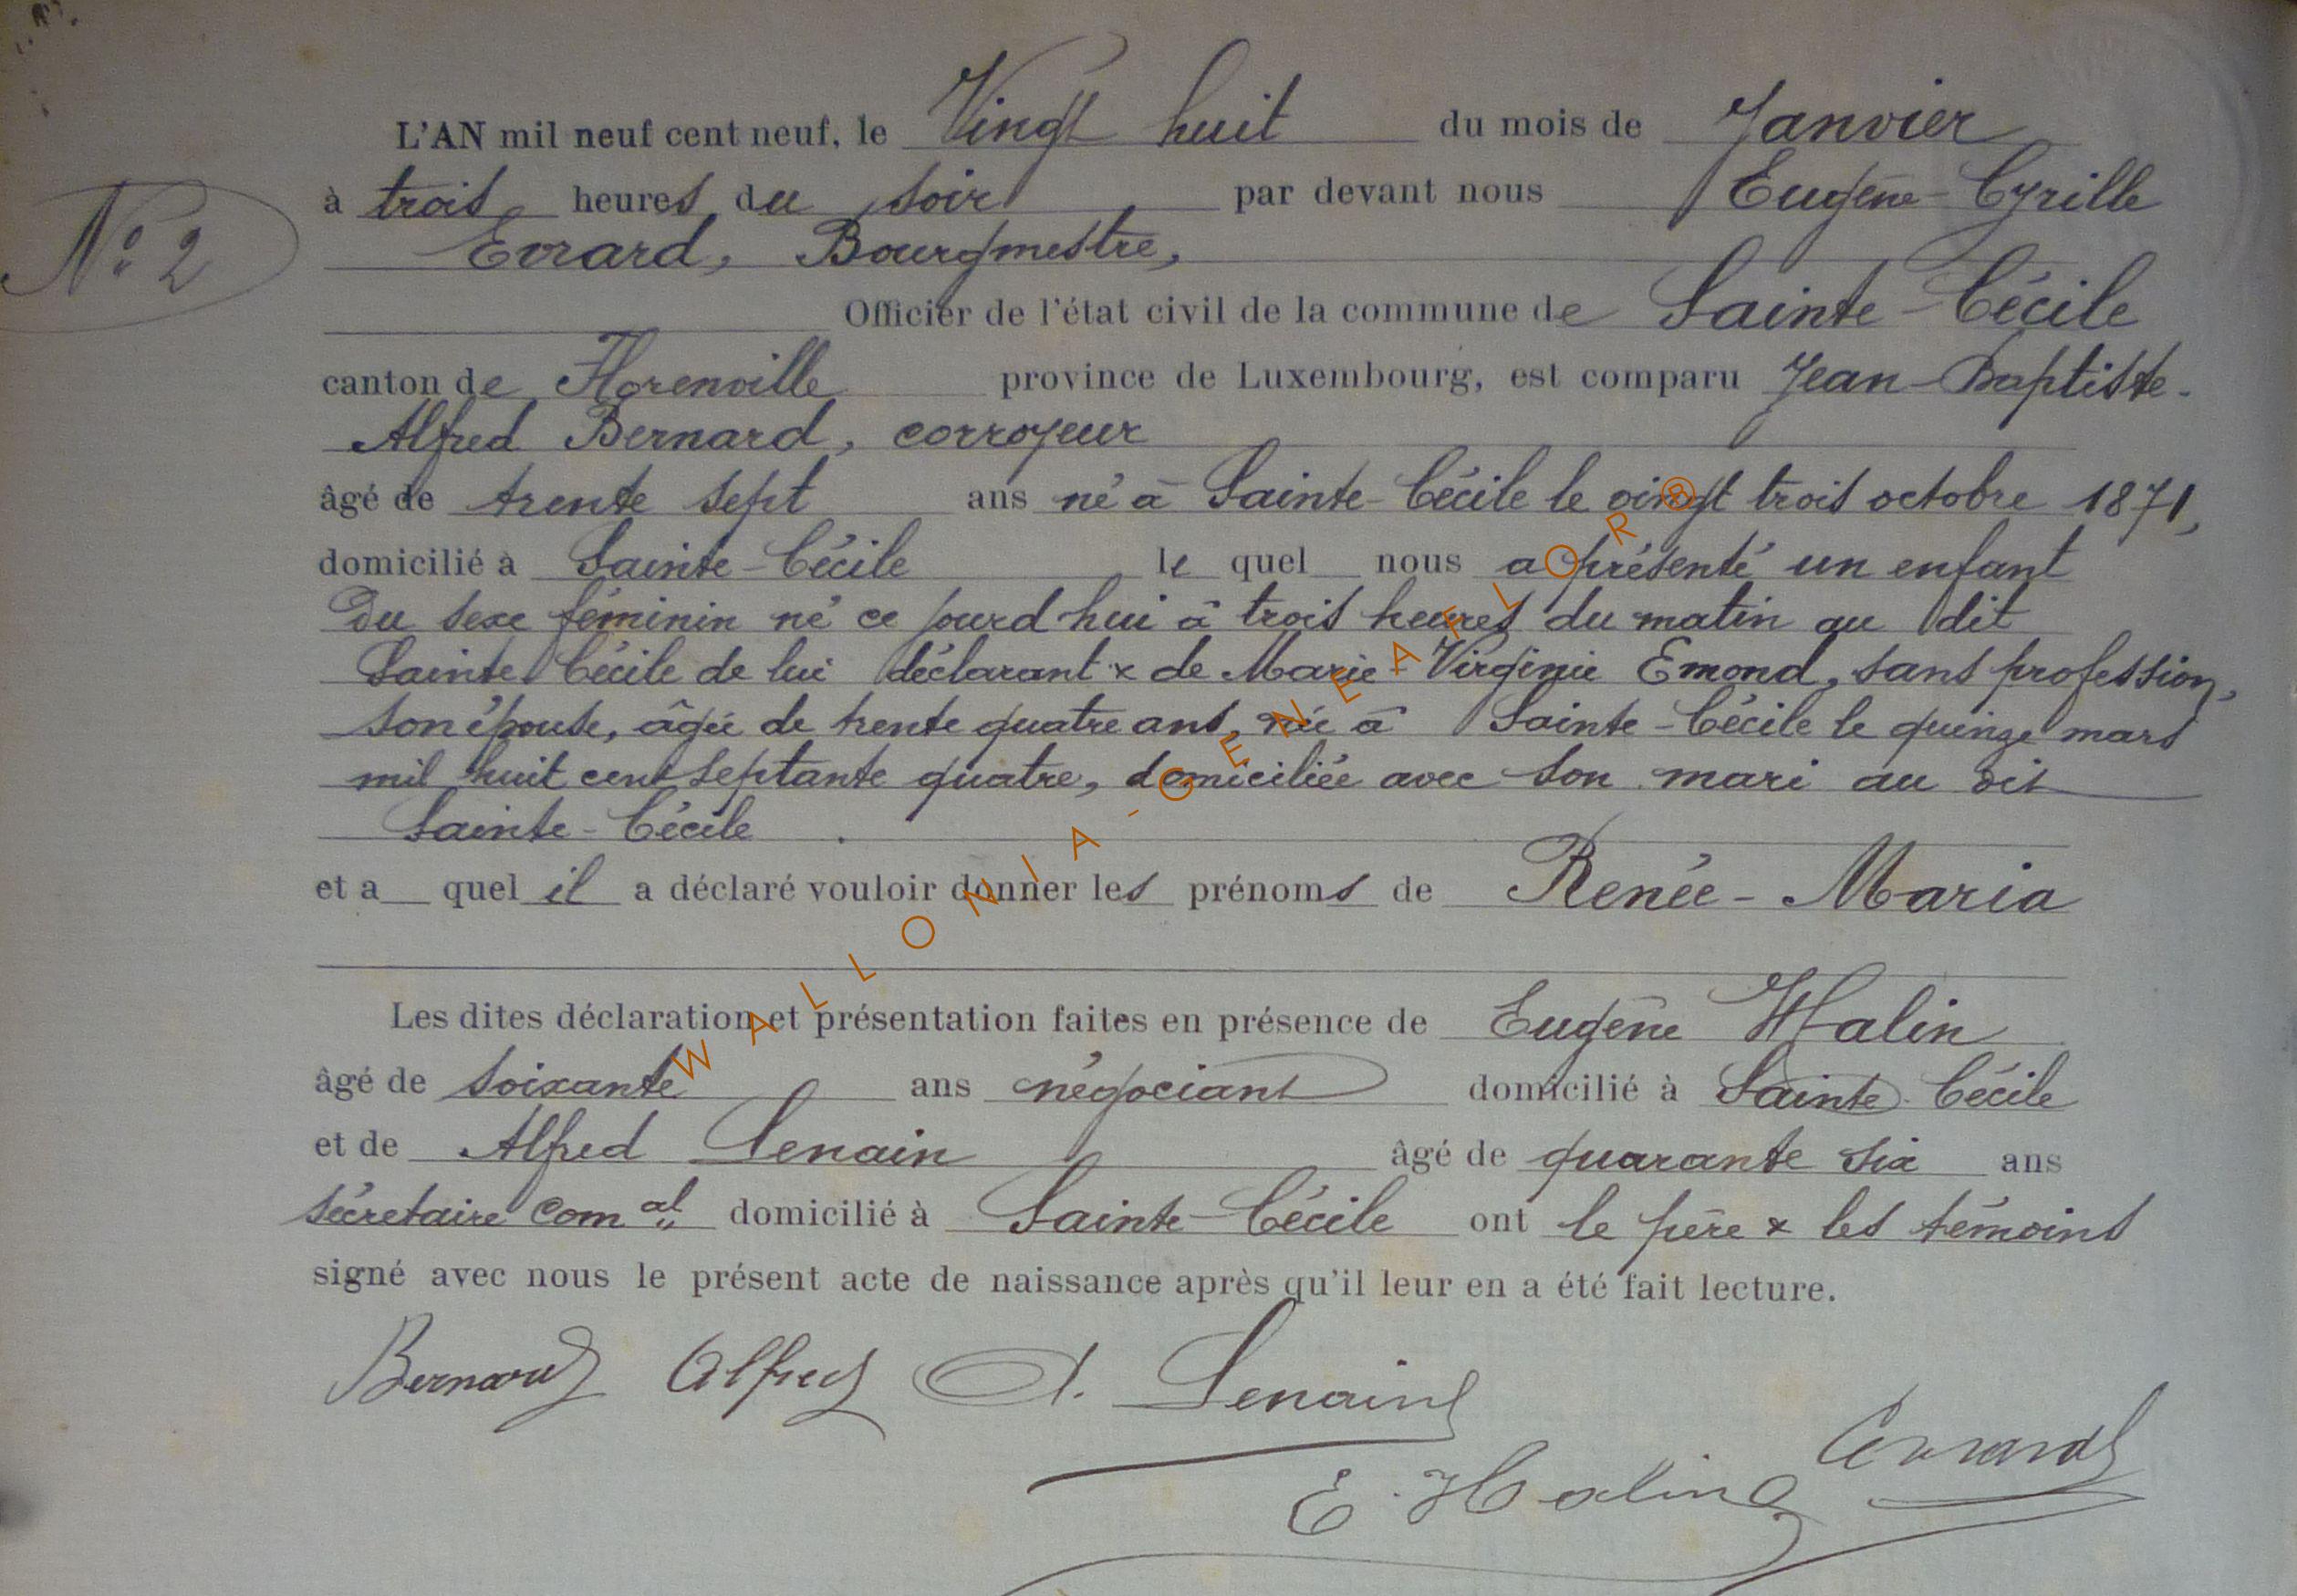 L'AN mil neuf cent neuf, le Vingt huit du mois de Janvier
à trois heures du soir par devant nous Eugène-Cyrille
N° 2
Evrard, Bourgmestre,
Officier de l'état civil de la commune de Sainte-Cécile
canton de Florenville province de Luxembourg, est comparu Jean-Baptiste-
Alfred Bernard, corroyeur
âgé de trente sept ans né à Sainte-Cécile le vingt trois octobre 1871,
domicilié à Sainte-Cécile le quel nous a présenté un enfant
Du sexe féminin né ce jourd'hui à trois heures du matin au dit
Sainte Cécile de lui déclarant & de Marie-Virginie Emond, sans profession,
son épouse, âgée de trente quatre ans, née à Sainte-Cécile le quinze mars
mil huit cent septante quatre, domiciliée avec son mari au dit
Sainte-Cécile.
et a quel il a déclaré vouloir donner les prénoms de Renée-Maria
Les dites déclaration et présentation faites en présence de Eugène Halin
âgé de soixante ans négociant domicilié à Sainte Cécile
et de Alfred Lenain âgé de quarante six ans
sécretaire comal domicilié à Sainte-Cécile ont le père & les témoins
signé avec nous le présent acte de naissance après qu'il leur en a été fait lecture.
Bernard Alfred A. Lenain
Evrard
E. Halin
WALLONIA-GENEAFLOR®